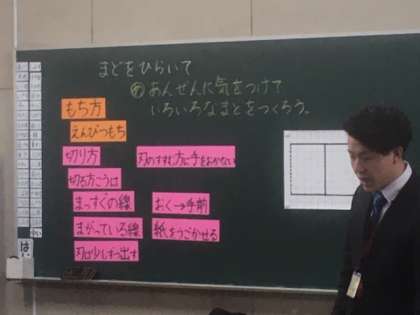 まどをひらいて
め あんぜんに気をつけて
いろいろなまどをつくろう。
もち方
えんぴつもち
切り方
刃のすすむ方に手をおかない
切る方こうは
まっすぐの線
おく→手前
まがっている線
紙をうごかせる
刃は少しずつ出す
はい